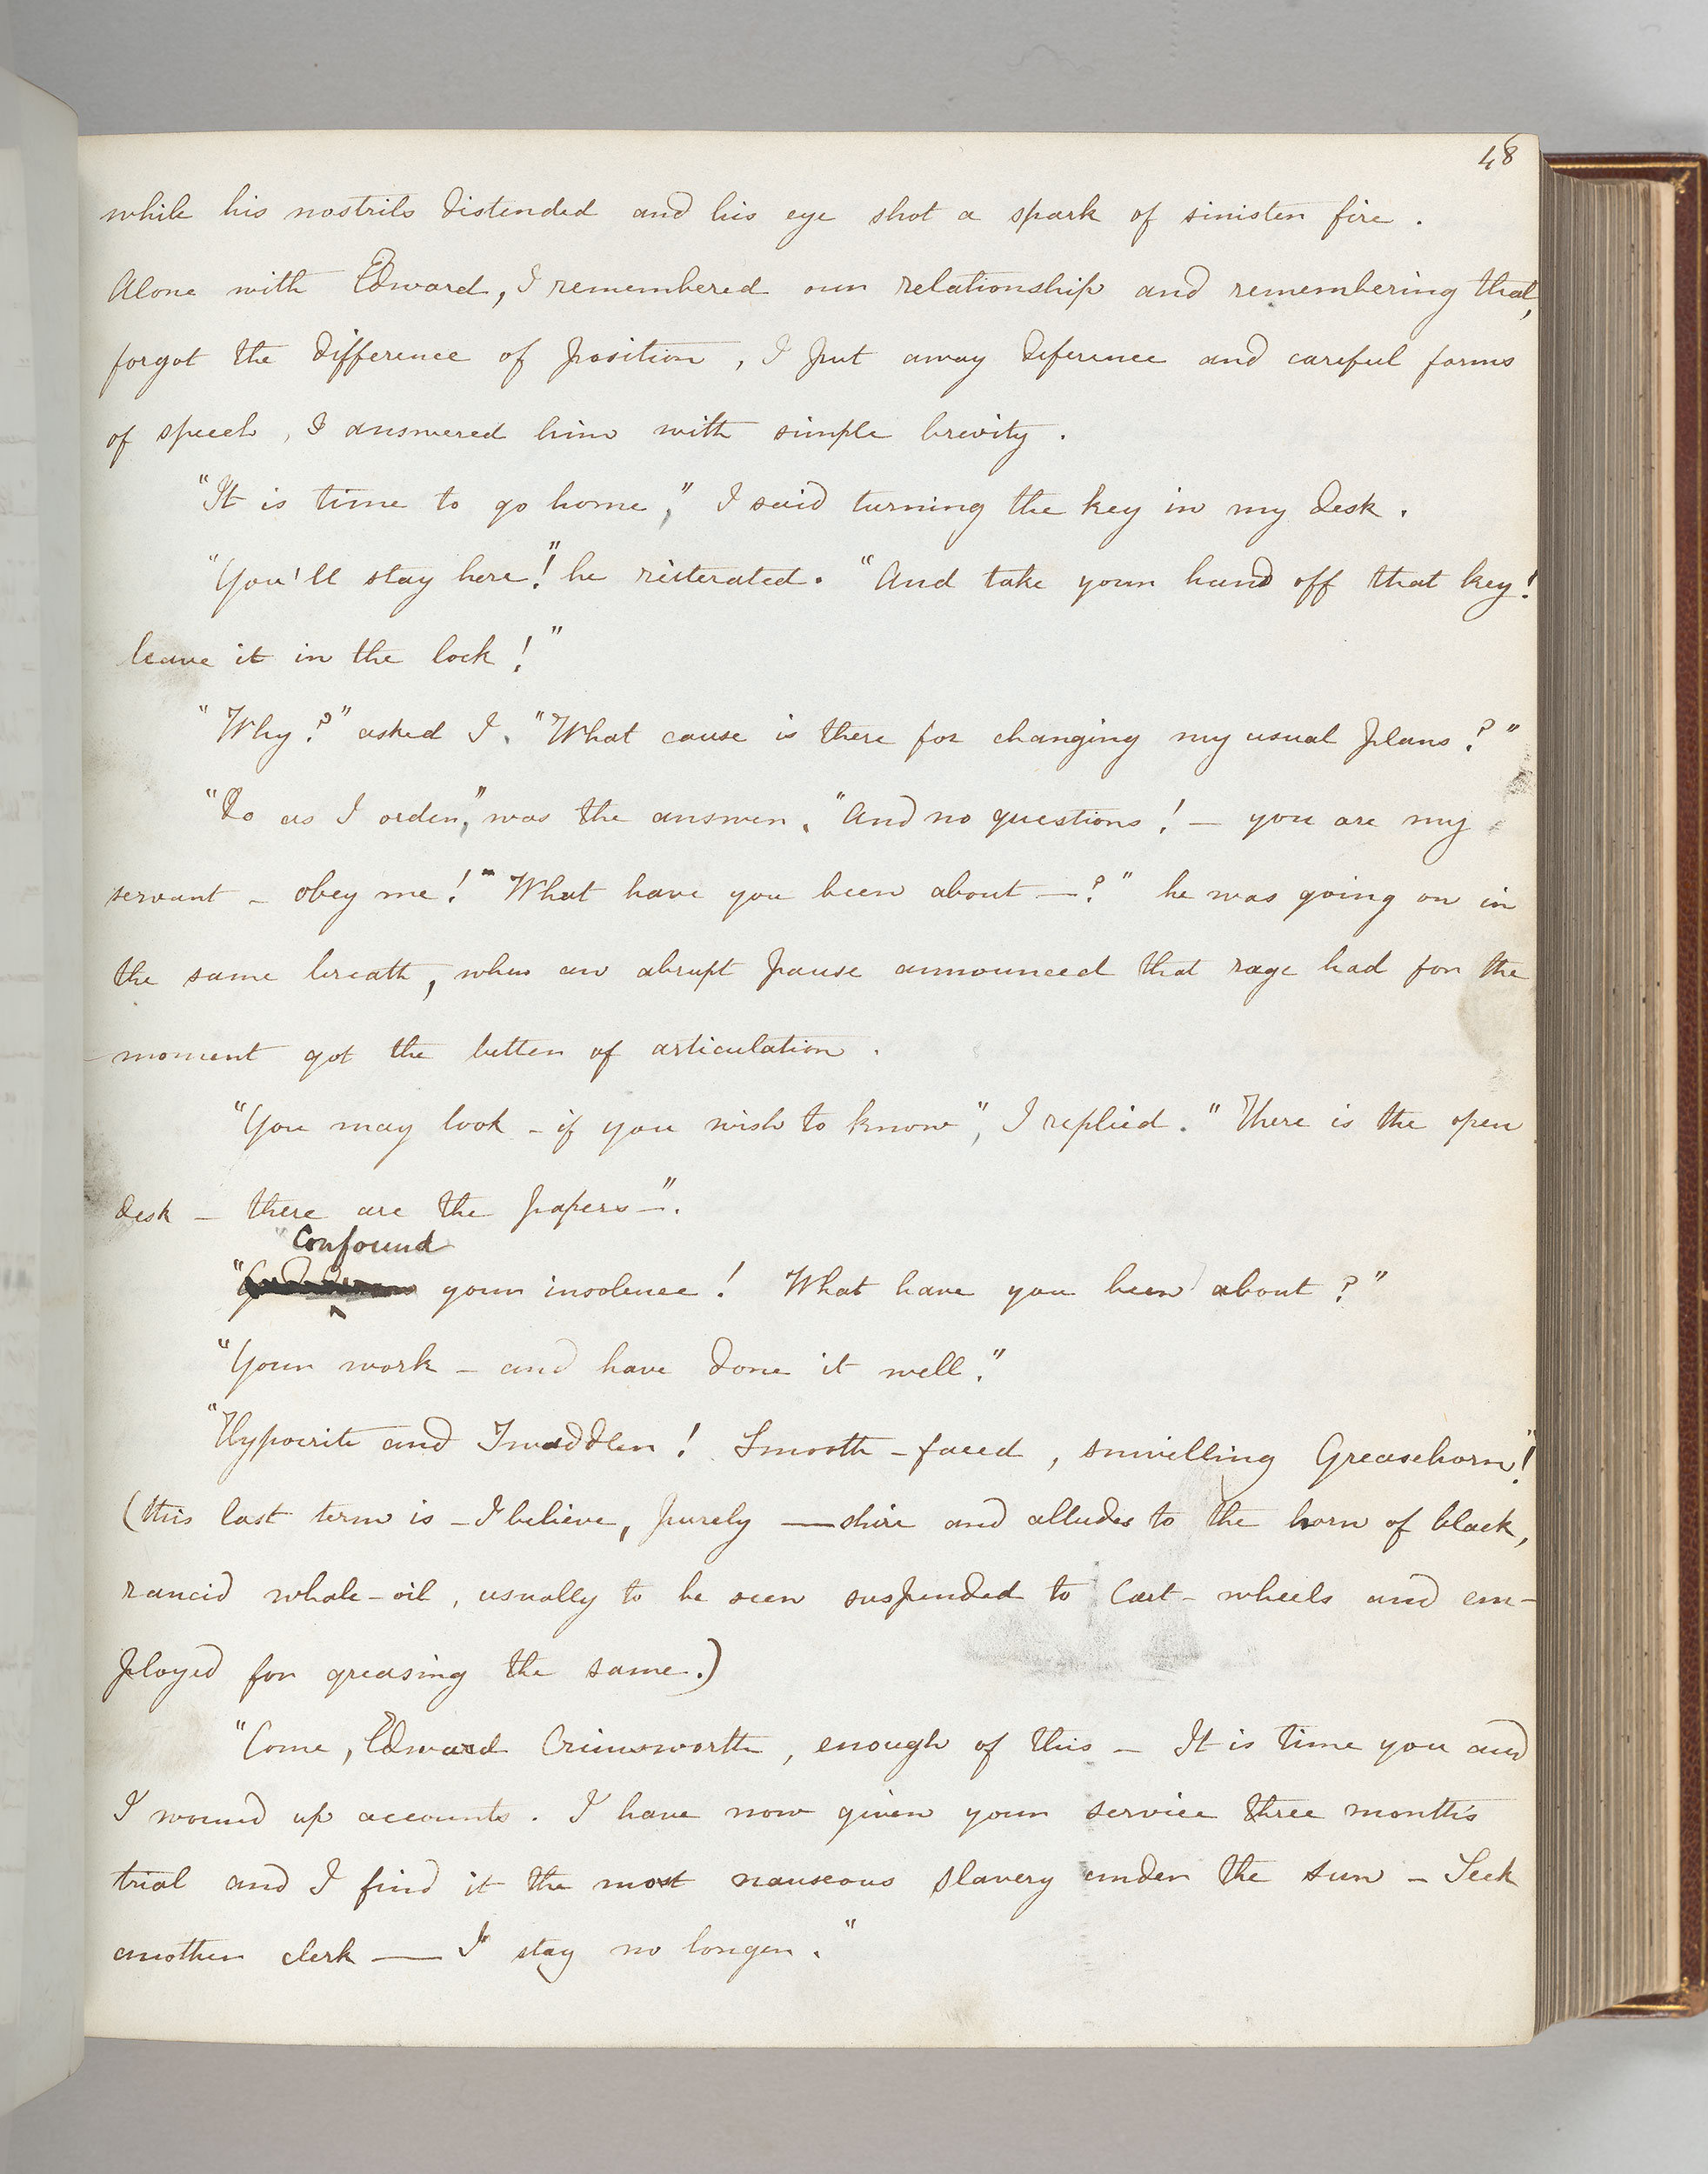 48
while his nostrils distended and his eye shot a spark of sinister fire.
Alone with Edward, I remembered our relationship and remembering that,
forgot the difference of position, I put away deference and careful forms
of speech, I answered him with simple brevity.
"It is time to go home," I said turning the key in my desk.
"You'll stay here!" he reiterated. "And take your hand off that key!
leave it in the lock!"
"Why?" asked I. "What cause is there for changing my usual plans?"
"Do as I order," was the answer. "And no questions! — you are my
servant — obey me!" What have you been about —?" he was going on in
the same breath, when an abrupt pause announced that rage had for the
moment got the better of articulation.
"You may look — if you wish to know", I replied. "There is the open
desk — there are the papers —".
"Confound
your insolence! What have you been about?"
"Your work — and have done it well."
"Hypocrite and Twaddler! Smooth-faced, snivelling Greasehorn!"
(this last term is — I believe, purely —shire and alludes to the horn of black,
rancid whale-oil, usually to be seen suspended to Cart-wheels and em-
ployed for greasing the same.)
"Come, Edward Crimsworth, enough of this — It is time you and
I wound up accounts. I have now given your service three months'
trial and I find it the most nauseous slavery under the sun — Seek
another clerk — I stay no longer."